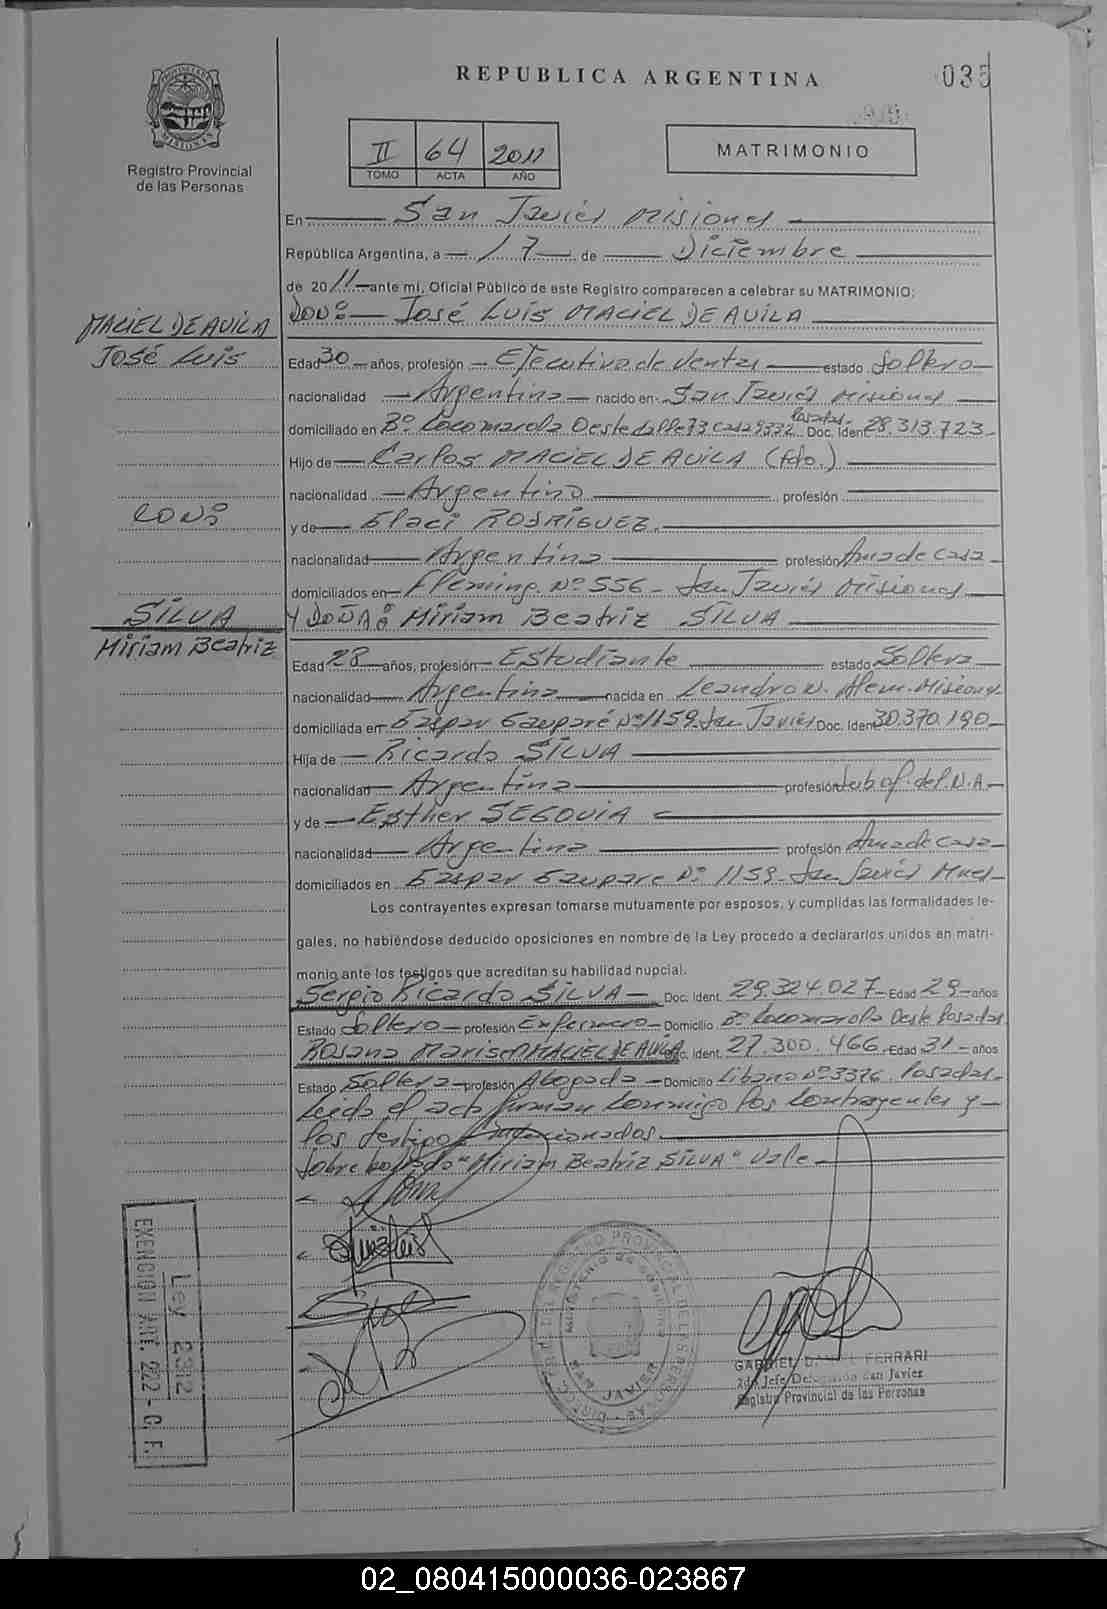 REPUBLICA ARGENTINA
035
PROVINCIA DE MISIONES
Registro Provincial
de las Personas
II 64 2011
TOMO ACTA AÑO
MATRIMONIO
En San Javier Misiones
República Argentina, a 17 de Diciembre
de 2011 ante mí, Oficial Público de este Registro comparecen a celebrar su MATRIMONIO:
MACIEL DE AVILA
José Luis
CON:
SILVA
Miriam Beatriz
DON: José Luis MACIEL DE AVILA
Edad 30 años, profesión Ejecutivo de Ventas estado Soltero
nacionalidad Argentina nacido en San Javier Misiones
domiciliado en Bº Locomarola Oeste Calle 73 Casa 9332 Posadas Doc. Ident. 28.313.723
Hijo de Carlos MACIEL DE AVILA (fdo.)
nacionalidad Argentino profesión
y de Elaci RODRIGUEZ
nacionalidad Argentina profesión Ama de casa
domiciliados en Fleming Nº 556 - San Javier Misiones
Y DOÑA: Miriam Beatriz SILVA
Edad 28 años, profesión Estudiante estado Soltera
nacionalidad Argentina nacida en Leandro N. Alem. Misiones
domiciliada en Gaspar Guaparé Nº 1159. San Javier Doc. Ident. 30.370.190
Hija de Ricardo SILVA
nacionalidad Argentina profesión Sub of. del. N.A
y de Esther SEGOVIA
nacionalidad Argentina profesión Ama de casa
domiciliados en Gaspar Guapare Nº 1159 San Javier Mnes
Los contrayentes expresan tomarse mutuamente por esposos, y cumplidas las formalidades le-
gales, no habiéndose deducido oposiciones en nombre de la Ley procedo a declararlos unidos en matri-
monio ante los testigos que acreditan su habilidad nupcial.
Sergio Ricardo SILVA Doc. Ident. 29.324.027 Edad 29 años
Estado Soltero profesión Enfermero Domicilio Bº Locomarola Oeste Posadas
Rosana Marisa MACIEL DE AVILA Doc. Ident. 27.300.466 Edad 31 años
Estado Soltera profesión Abogada Domicilio Libano Nº 3376. Posadas
Leida el acta firman conmigo los contrayentes y
los testigos mencionados.
Sobre borrado "Miriam Beatriz SILVA" Vale
Ley 2312
EXENCION ART. 222 - C.F.
GABRIEL DANIEL FERRARI
2do Jefe Delegación San Javier
Registro Provincial de las Personas
02_080415000036-023867